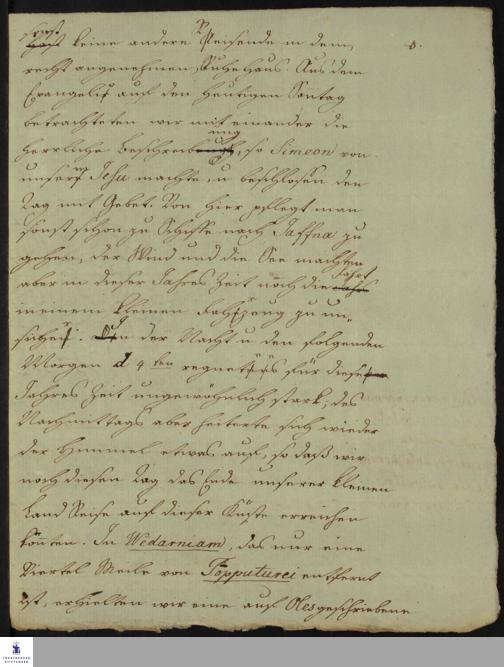 sonst keine andere Reisende in dem,
recht angenehmen, Ruhe Haus. Aus dem
Evangelis auf den heutigen Sontag
betrachteten wir mit einander die
herrliche Beschreibung, so Simeon von
unserm Jesu machte, u beschlossen den
Tag mit Gebet. Von hier pflegt man
sonst schon zu Schiffe nach Jaffna zu
gehen, der Wind und die See machten
aber in dieser Jahres Zeit noch die Fahrt
meinem kleinen Fahrzeug zu un-
sicher. In der Nacht u den folgenden
Morgen d 4ten regnete es für diese
Jahres Zeit ungewöhnlich stark; des
Nachmittags aber heiterte sich wieder
der Himmel etwas auf, so daß wir
noch diesen Tag das Ende unserer kleinen
Land Reise auf dieser Küste erreichen
könten. In Wedarniam, das nur eine
Viertel Meile von Topputurei entfernt
ist, erhielten wir eine auf Oles geschriebene
FRANCKESCHE
STIFTUNGEN